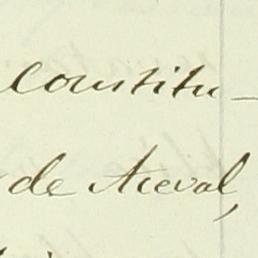 constitu-
de Aceval,